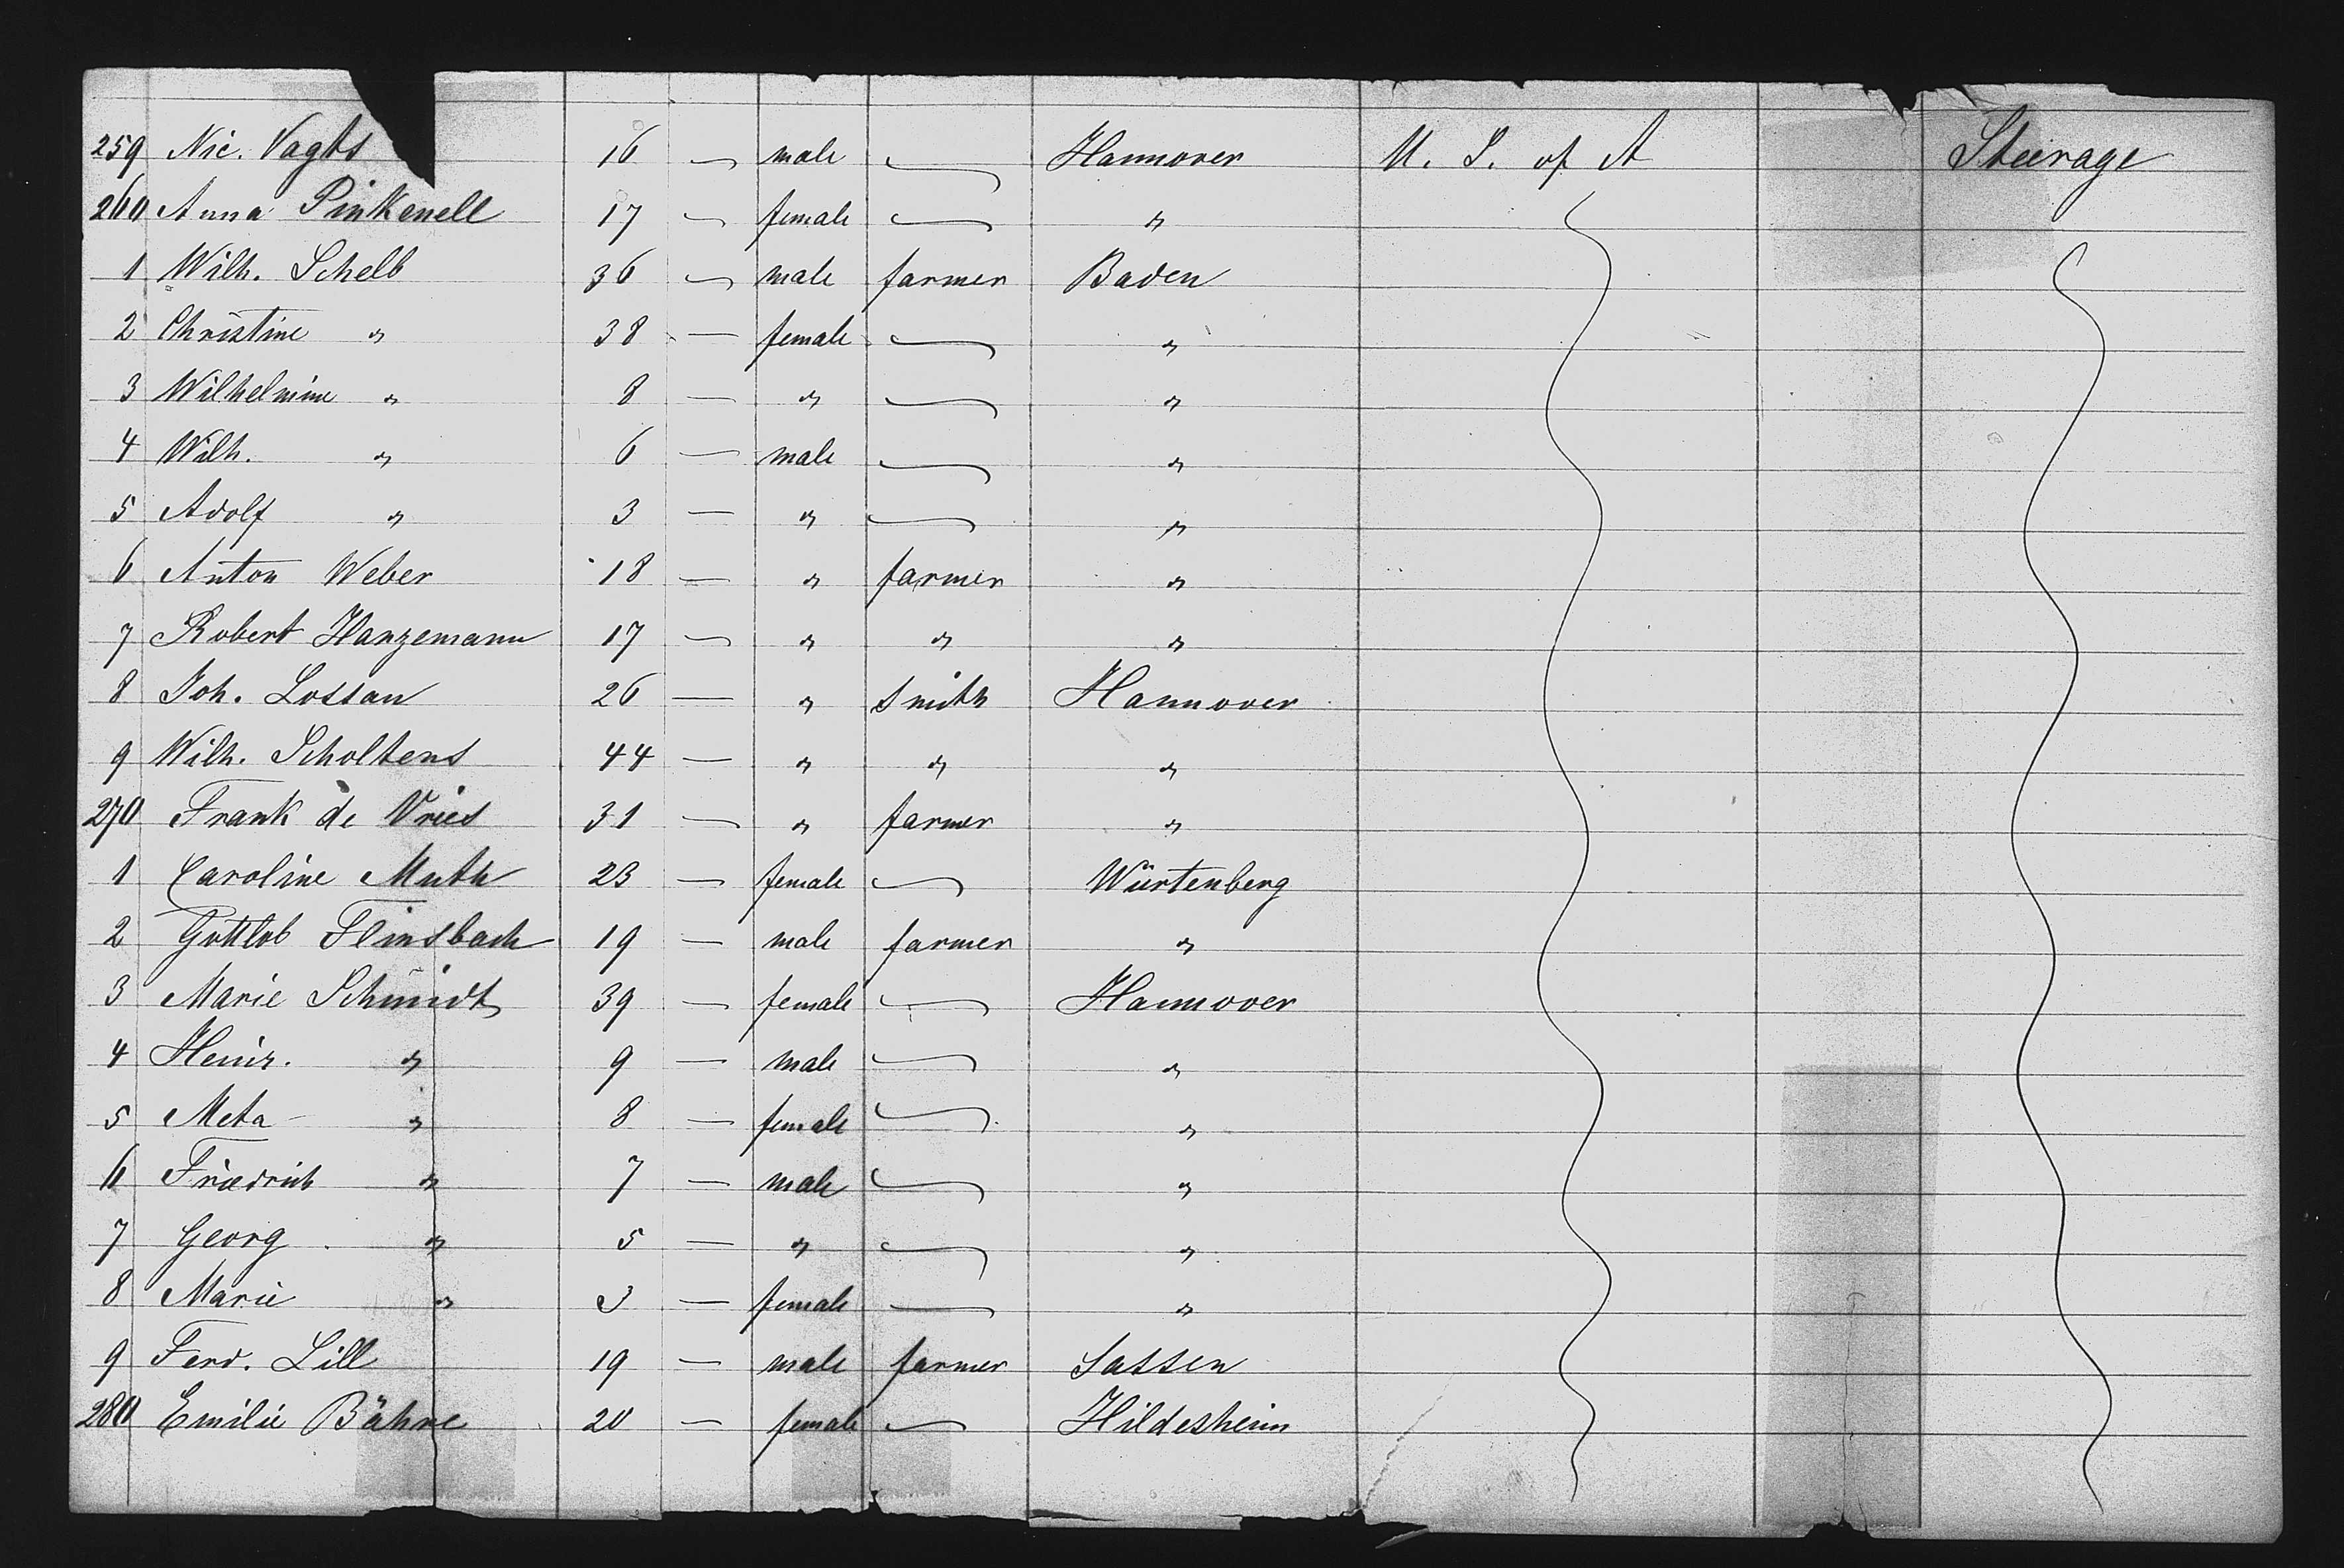 259 Nic. Vagts 16 — male — Hannover U. S. of A Steerage
260 Anna Pinkenell 17 — female — "
1 Wilh. Schelb 36 — male farmer Baden
2 Christine " 38 — female — "
3 Wilhelmine " 8 — " — "
4 Wilh. " 6 — male — "
5 Adolf " 3 — " — "
6 Anton Weber 18 — " farmer "
7 Robert Hanzemann 17 — " " "
8 Joh. Lossau 26 — " Smith Hannover
9 Wilh. Scholtens 44 — " " "
270 Frank de Vries 31 — " farmer "
1 Caroline Muth 23 — female — Würtenberg
2 Gottlob Flinsbach 19 — male farmer "
3 Marie Schmidt 39 — female — Hannover
4 Heinr. " 9 — male — "
5 Meta " 8 — female — "
6 Friedrich " 7 — male — "
7 Georg " 5 — " — "
8 Marie " 3 — female — "
9 Ferd. Lill 19 — male farmer Sassen
280 Emilie Bähne 20 — female — Hildesheim